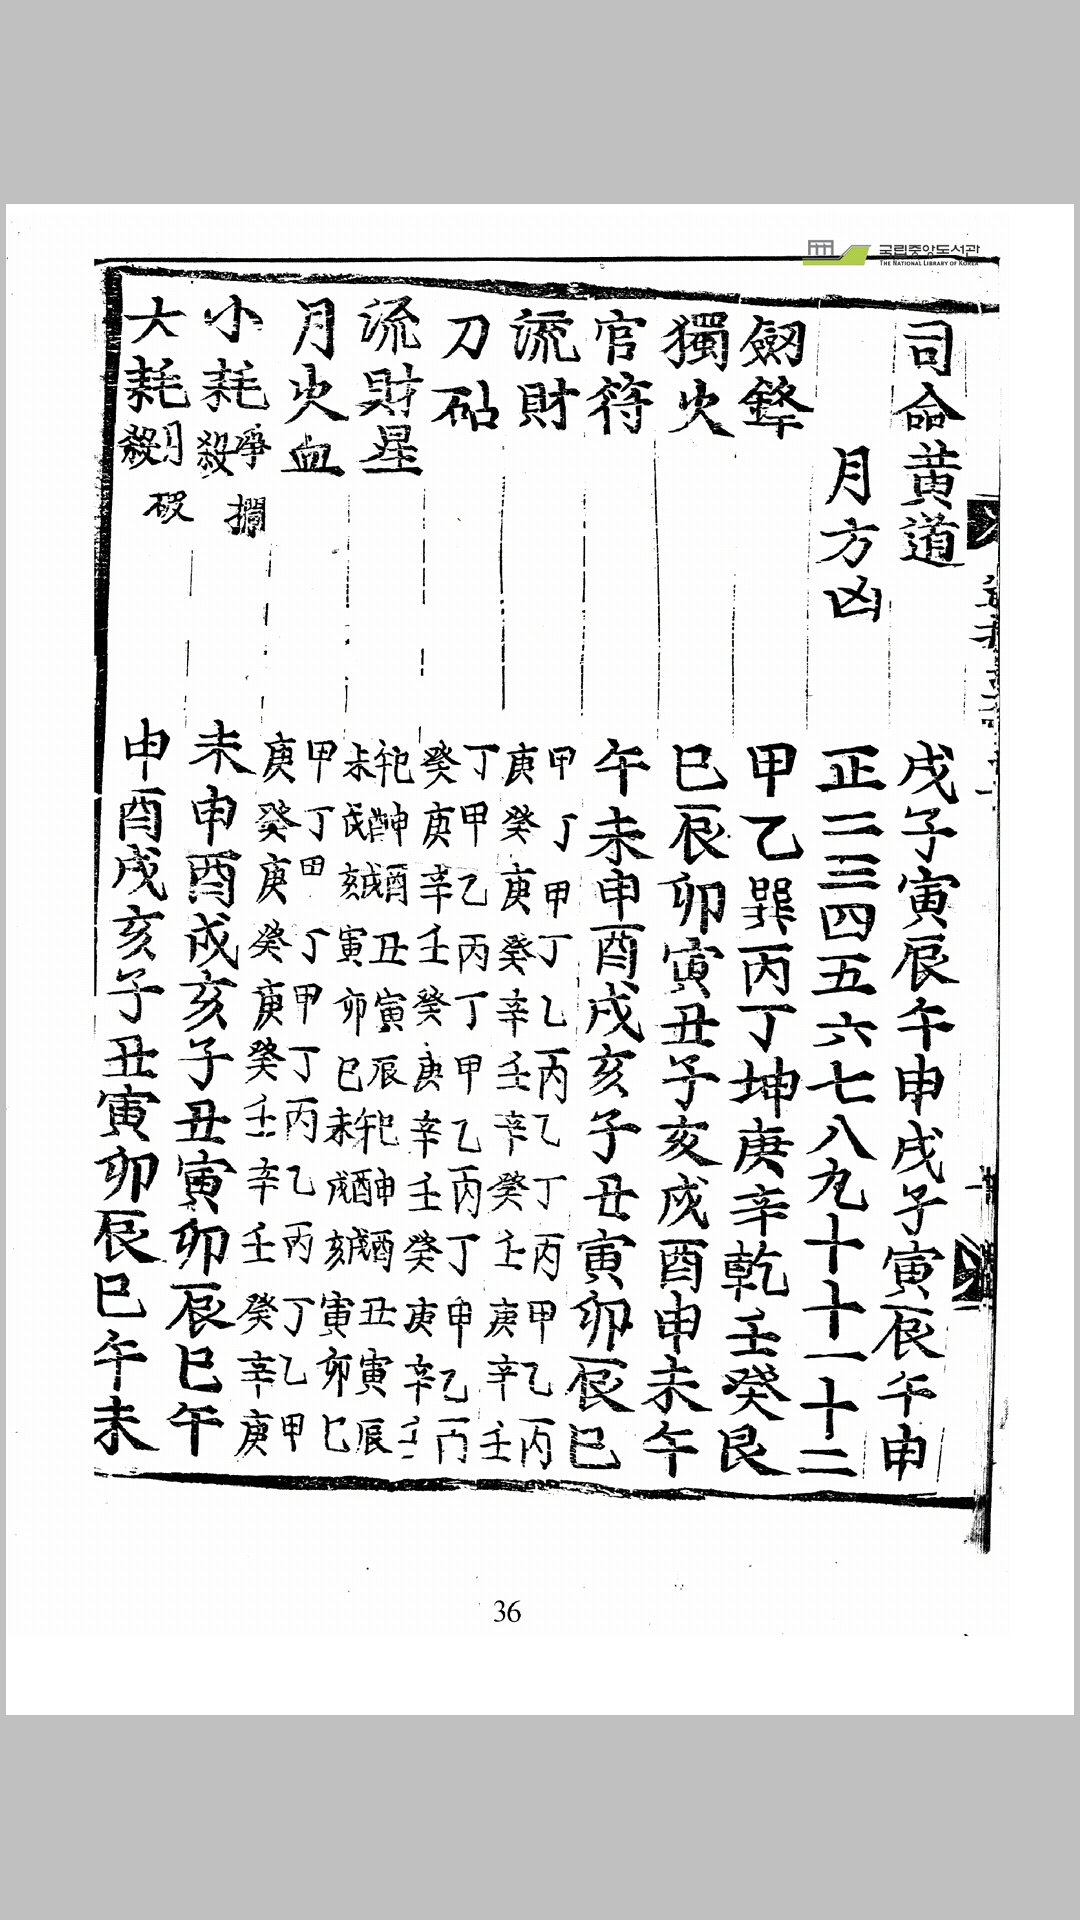 국립중앙도서관
THE NATIONAL LIBRARY OF KOREA
司命黄道 戌子寅辰午申戌子寅辰午申
月方凶 正二三四五六七八九十十一十二
劔鋒 甲乙巽丙丁坤庚辛乾壬癸艮
獨火 巳辰卯寅丑子亥戌酉申未午
官符 午未申酉戌亥子丑寅卯辰巳
流財 甲丁甲丁乙丙乙丁丙甲乙丙
庚癸庚癸辛壬辛癸壬庚辛壬
刀砧 丁甲乙丙丁甲乙丙丁甲乙丙
癸庚辛壬癸庚辛壬癸庚辛壬
流財星 午巳酉申戌酉丑寅辰午巳酉申戌酉丑寅辰
未戌亥寅卯巳未戌亥寅卯巳
月火血 甲丁甲丁甲丁丙乙丙丁乙甲
庚癸庚癸庚癸壬辛壬癸辛庚
小耗 爭殺 攔 未申酉戌亥子丑寅卯辰巳午
大耗 月殺 破 申酉戌亥子丑寅卯辰巳午未
36